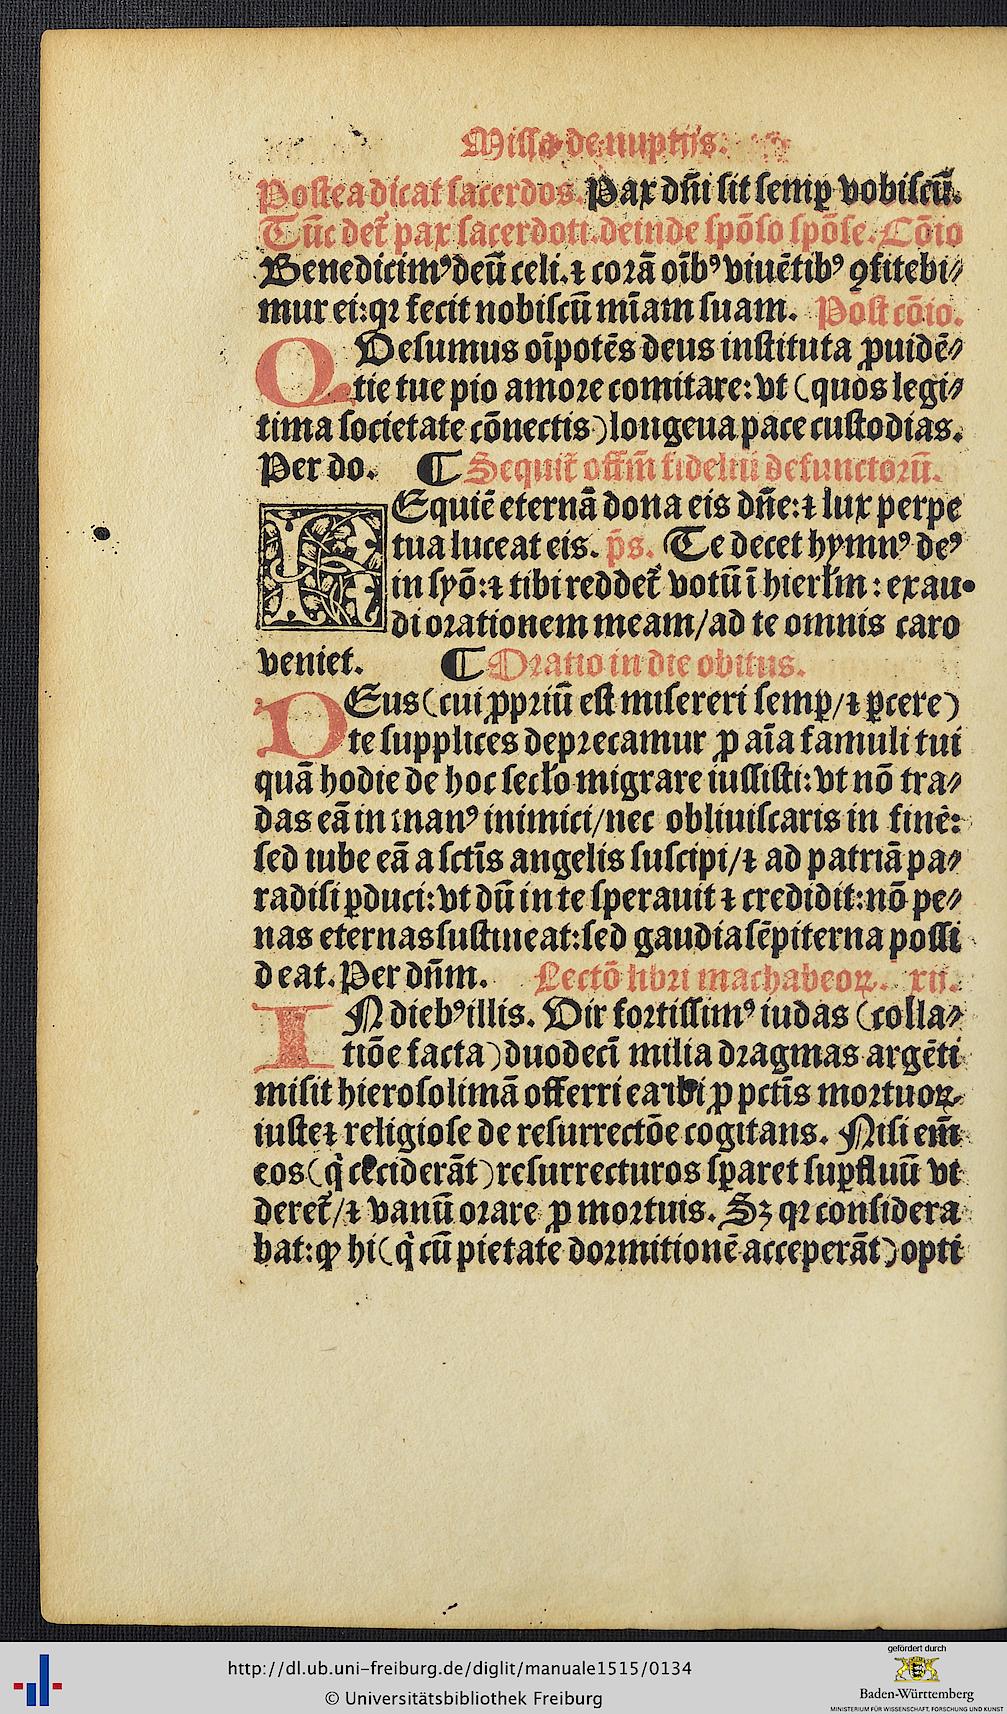 Missa de nuptijs.
Postea dicat sacerdos. Pax dñi sit semꝑ vobiscū.
Tūc det᷑ pax sacerdoti. deinde spōso spōse. Cōio
Benedicimꝰ deū celi. ⁊ corā oībꝰ viuētibꝰ ꝯfitebi⸗
mur ei: qꝛ fecit nobiscū mīam suam. Post cōio.
QUesumus oīpotēs deus instituta ꝓuidē⸗
tie tue pio amore comitare: vt (quos legi⸗
tima societate cōnectis) longeua pace custodias.
Per do. ¶ Sequit᷑ offm̄ fideliū defunctorū.
REquiē eternā dona eis dñe: ⁊ lux perpe
tua luceat eis. p̄s. Te decet hymnꝰ deꝰ
in syō: ⁊ tibi reddet᷑ votū ī hierlm̄: exau⸗
di orationem meam/ ad te omnis caro
veniet. ¶ Oratio in die obitus.
DEus (cui ꝓpriū est misereri semꝑ/ ⁊ ꝑcere)
te supplices deprecamur ꝓ aīa famuli tui
quā hodie de hoc secło migrare iussisti: vt nō tra⸗
das eā in manꝰ inimici/ nec obliuiscaris in finē:
sed iube eā a sctīs angelis suscipi/ ⁊ ad patriā pa⸗
radisi ꝑduci: vt dū in te sperauit ⁊ credidit: nō pe⸗
nas eternas sustineat: sed gaudia sēpiterna possi
deat. Per dñm. Lectō libri machabeoꝝ. xij.
IN diebꝰ illis. Vir fortissimꝰ iudas (colla⸗
tiōe facta) duodecī milia dragmas argēti
misit hierosolimā offerri ea ibi ꝓ pctīs mortuoꝝ
iuste ⁊ religiose de resurrectōe cogitans. Nisi em̄
eos (q̇ ceciderāt) resurrecturos sꝑaret suꝑfluū vi
deret᷑/ ⁊ vanū orare ꝓ mortuis. Sꝫ qꝛ considera
bat: ꝙ hi (q̇ cū pietate dormitionē acceperāt) opti
http://dl.ub.uni-freiburg.de/diglit/manuale1515/0134
© Universitätsbibliothek Freiburg
gefördert durch
Baden-Württemberg
MINISTERIUM FÜR WISSENSCHAFT, FORSCHUNG UND KUNST